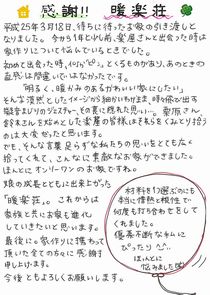 感謝!! 暖楽荘
平成25年3月18日、待ちに待ったお家の引き渡しと
なりました。今から1年と少し前、楽居さんと出会った時は
家作りについて悩んでいるときでした。
初めて出会った時、ピピッ！ととくるものがあり、あのときの
直感は間違いではなかったです。
「明るく、暖かみのあるかわいい家にしたい」
そんな漠然としたイメージから細かいわがまま、時々
擬音まじりのジェスチャーをその意に
鈴木さんを始めとした楽居の皆様はそれらをくみとり拾う
のは大変だったと思います。
でも、そんな言葉足らずな私たちの思いをとても広く
拾ってくれて、こんなに素敵なお家ができました。
ほんとにオンリーワンのお家ですね。
娘の成長とともに出来上がった
「暖楽荘」。これからは
家族と共にお家も進化
していきたいと思います。
最後に。家作りに携わって
頂いた全ての方々に感謝
申し上げます。
今後ともよろしくお願いします。
材料を1つ選ぶのにも
本当に情熱と根性で
何度も打ち合わせをして
くれました。
優柔不断なキムに
ぴったり
ほんとーに
悩みました